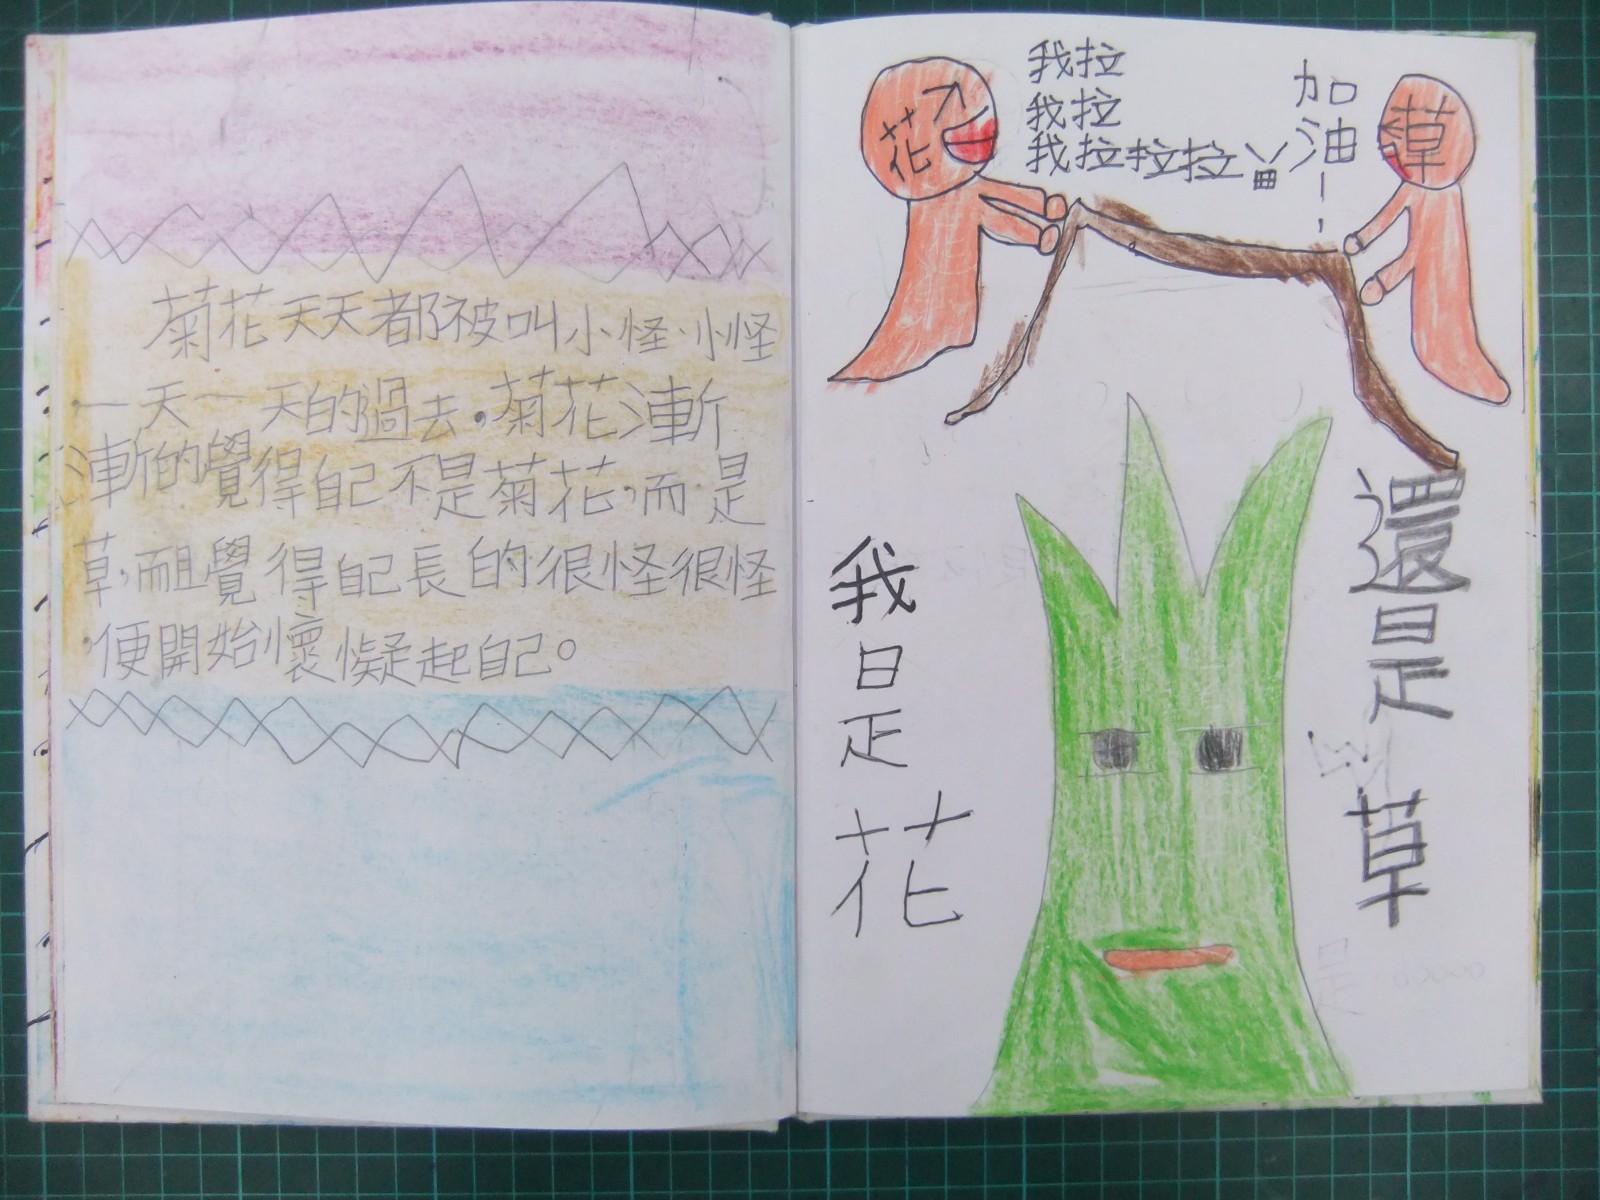 菊花天天都被叫小怪小怪
，一天一天的過去，菊花漸
漸的覺得自己不是菊花，而是
草，而且覺得自己長的很怪很怪
，便開始懷懝起自己。
花
我拉
我拉
我拉拉拉
加油
草
我是花
還是草